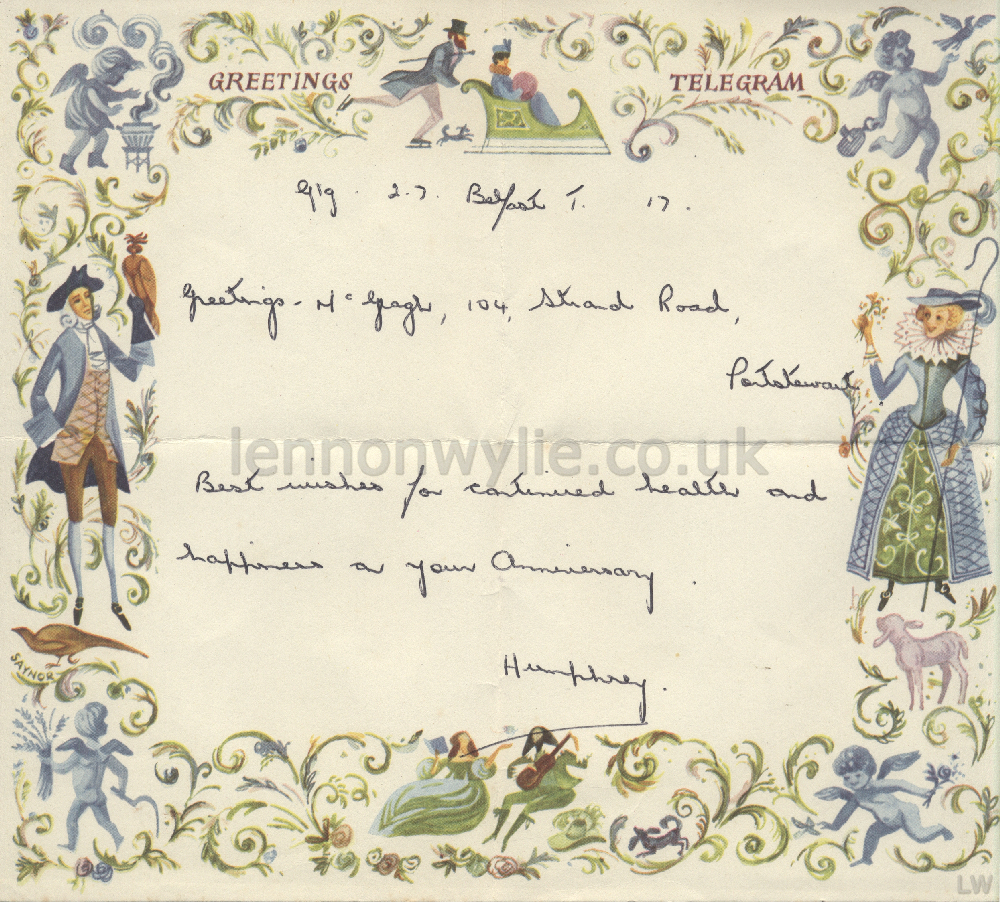 GREETINGS TELEGRAM
2-7. Belfast T. 17.
Greetings - Mc Geagh, 104, Strand Road,
Portstewart.
lennonwylie.co.uk
Best wishes for continued health and
happiness on your Anniversary.
SAYNOR
Humphrey.
LW